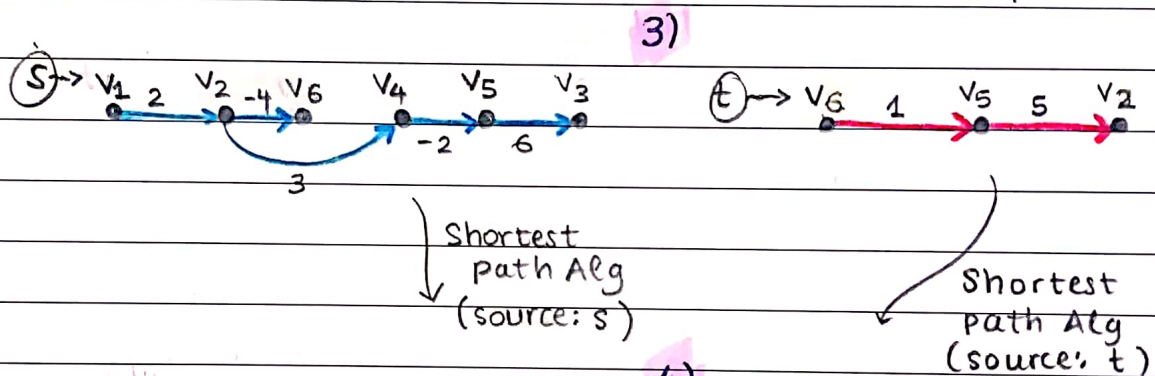 3)
S → V1 2 V2 -4 V6 V4 V5 V3
-2 6
3
t → V6 1 V5 5 V2
Shortest
path Alg
(source: s)
Shortest
path Alg
(source: t)